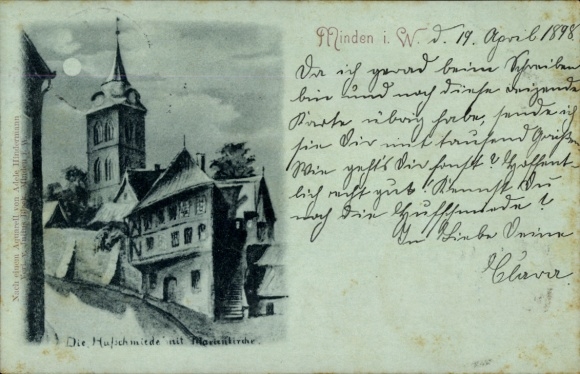 Minden i. W. d. 19. April 1898
Da ich gerad beim Schreiben
bin und noch diese reizende
Karte übrig habe, sende ich
sie Dir mit tausend Grüßen.
Wie geht's Dir sonst? Hoffent
lich recht gut! Kennst Du
noch die Hufschmiede?
In Liebe Deine
Clara.
Die "Hufschmiede" mit Marienkirche.
Nach einem Aquarell von Adele Hindermann